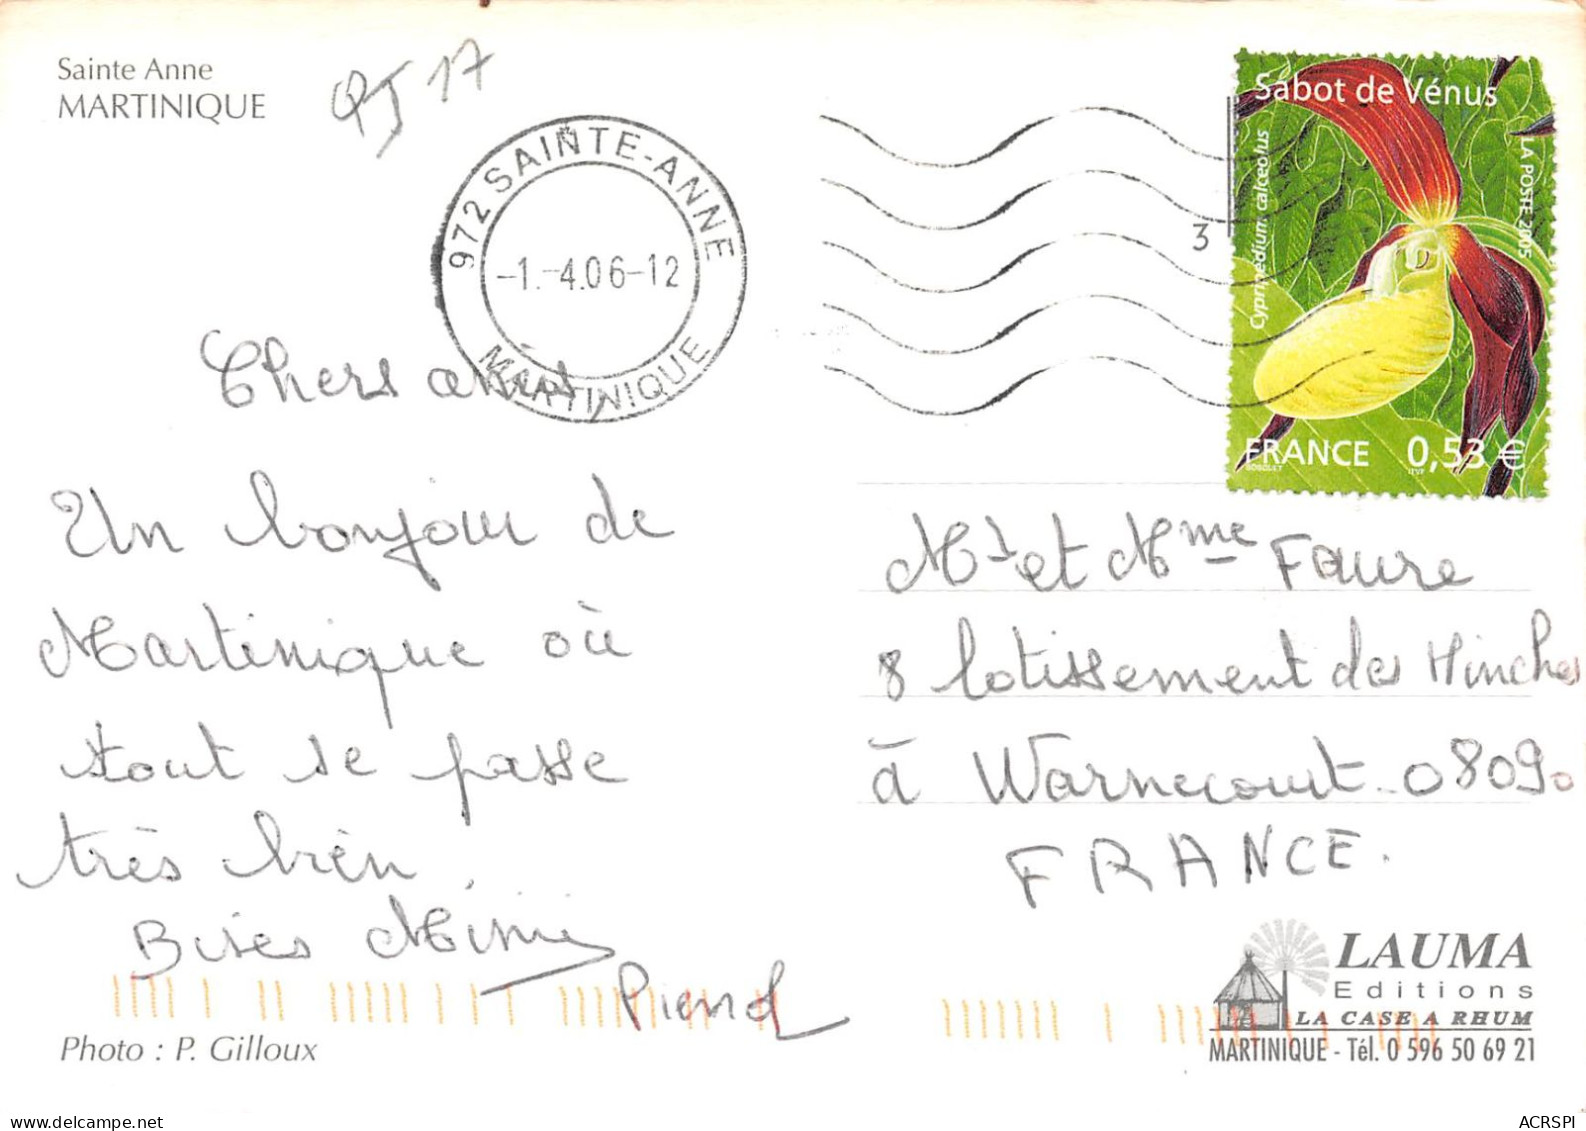 Sainte Anne
MARTINIQUE
972 SAINTE-ANNE
-1.-4.06-12
MARTINIQUE
3
Sabot de Vénus
Cypripedium calceolus
LA POSTE 2005
FRANCE 0,53 €
Chers amis,
Un bonjour de
Martinique où
tout se passe
très bien.
Bises Mimi
Photo : P. Gilloux
Mr et Mme Faure
8 lotissement des Minches
à Warnecourt. 08090
FRANCE.
LAUMA
Editions
LA CASE A RHUM
MARTINIQUE - Tél. 0 596 50 69 21
ACRSPI